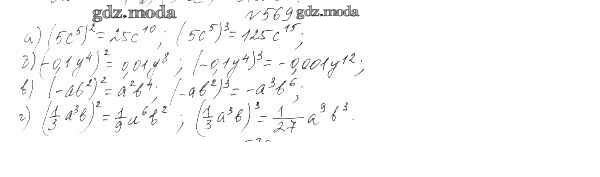 gdz.moda №569 gdz.moda
а) (5c⁵)² = 25c¹⁰; (5c⁵)³ = 125c¹⁵;
б) (-0,1y⁴)² = 0,01y⁸; (-0,1y⁴)³ = -0,001y¹²;
в) (-ab²)² = a²b⁴; (-ab²)³ = -a³b⁶;
г) (1/3 a³b)² = 1/9 a⁶b²; (1/3 a³b)³ = 1/27 a⁹b³.